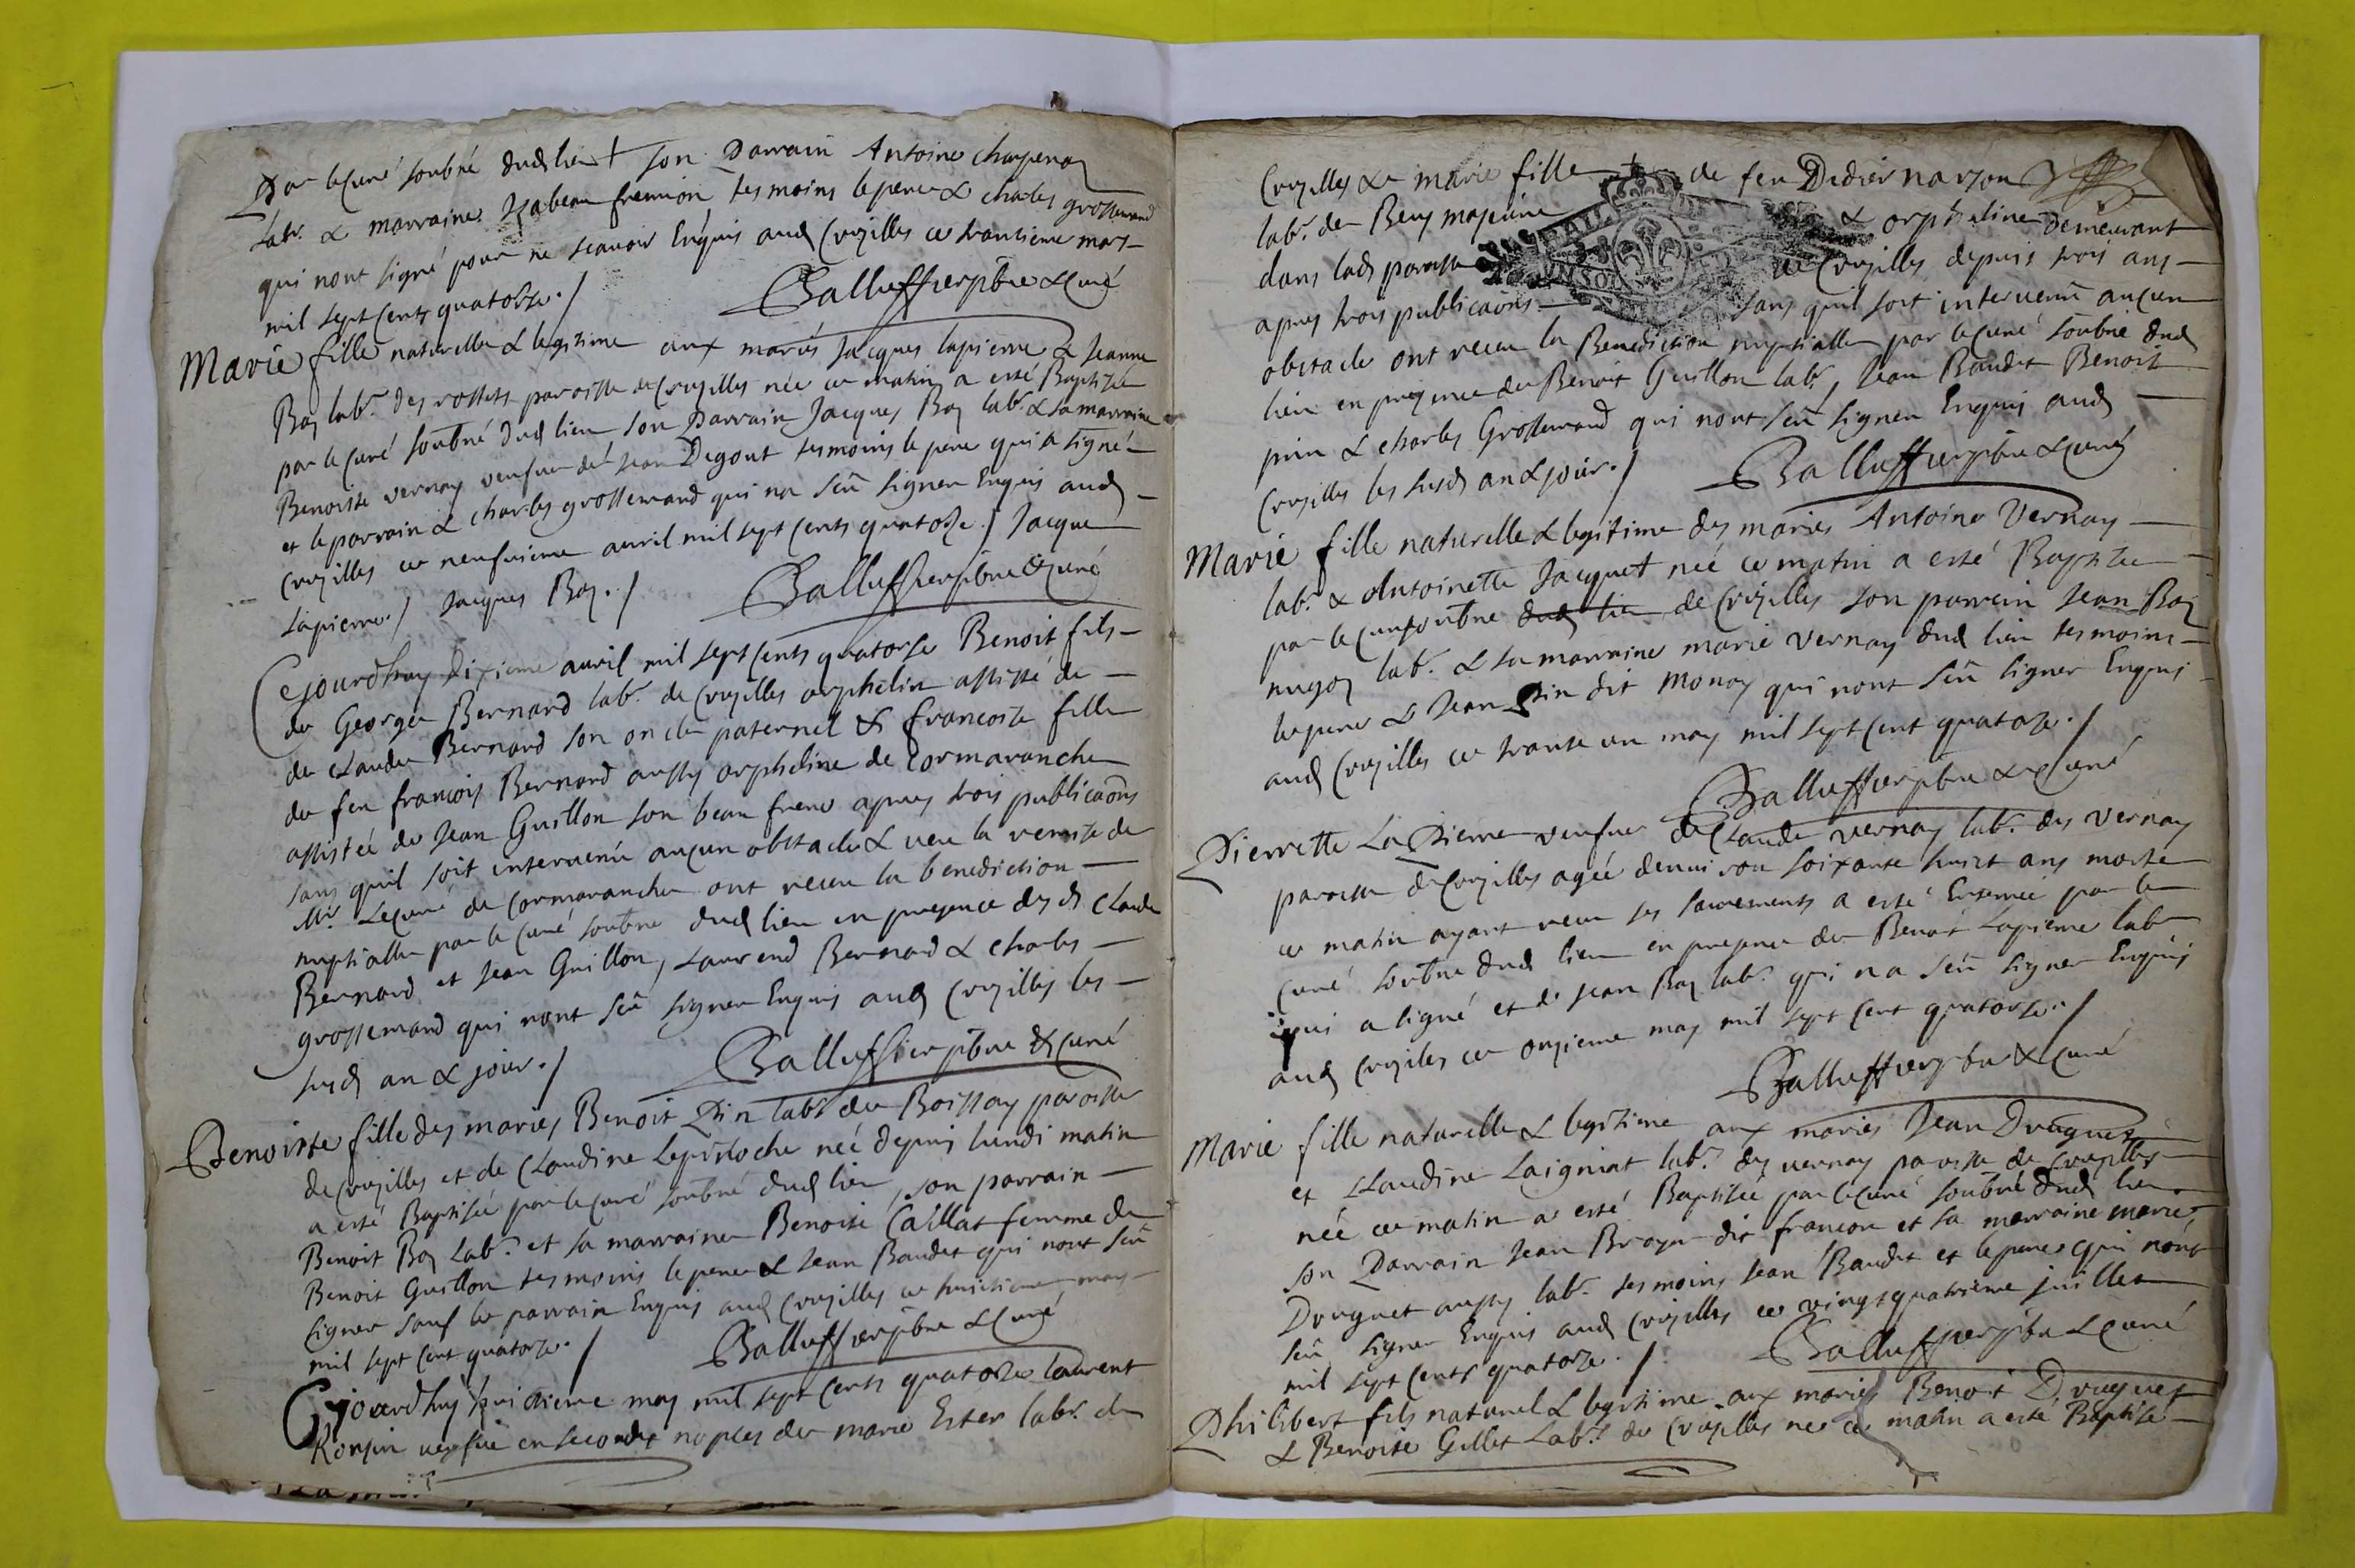 Par le Curé soubné dud lieu + son Parrain Antoine charpenay
labr. & marraine. Izabeau fremion tesmoins le pere & charles grossemand
qui nont signé pour ne scavoir Enquis aud Cruzilles ce trantieme mars
mil sept cents quatorze./ Balluffier pbre & Curé
Marie fille naturelle & legitime aux mariés Jacques lapierre & Jeanne
Boz labr. des rossets paroisse de Cruzilles née ce matin a esté Baptizée
par le Curé soubné dud lieu son Parrain Jacques Boz labr. & sa marraine
Benoiste vernay veufve de Jean Degout tesmoins le pere qui a signé
et le parrain & charles grossemand qui na seu signer Enquis aud
Cruzilles ce neufvieme avril mil sept cents quatorze./ Jacque
Lapierre./ Jacques Boz./ Balluffier pbre & Curé
Cejourdhuy Dixieme avril mil sept cents quatorze Benoit fils
de George Bernard labr. de Cruzilles orphelin assisté de
de Claude Bernard son oncle paternel & francoise fille
de feu francois Bernard aussy orpheline de Cormaranche
assistée de Jean Guillon son beau frere apres trois publicaõns
sans quil soit intervenu aucun obstacle & veu la remise de
Mr. Lecuré de Cormaranche ont receu la benediction
nuptialle par le Curé soubné dud lieu en presence desd Claude
Bernard et Jean Guillon, Laurend Bernard & charles
grossemand qui nont seu signer Enquis aud Cruzilles les
susd an & jour./ Balluffier pbre & Curé
Benoiste fille des mariés Benoit Pin labr. du Boissay paroisse
de Cruzilles et de Claudine Lepinloche née depuis lundi matin
a esté Baptisée par le Curé soubné dud lieu, son parrain
Benoit Boz Labr. et sa marraine Benoise Caillat femme de
Benoit Guillon tesmoins le pere & Jean Baudet qui nont seu
signer sauf le parrain Enquis aud Cruzilles ce huictieme may
mil sept cent quatorze./ Balluffier pbre & Curé
Cejourdhuy huictieme may mil sept cents quatorze laurent
Ronjin veufve en secondes nopces de marie Ester labr. de
Cruzilles & marie fille de feu Didier narjon
labr. de Bey majeure & orpheline demeurant
dans lad paroisse de Cruzilles depuis trois ans
apres trois publicaõns sans quil soit intervenu aucun
obstacle ont receu la Benediction nuptialle par le Curé soubné dud
lieu en presence de Benoit Guillon labr, Jean Baudet Benoit
pin & charles Grossemand qui nont seu signer Enquis aud
Cruzilles les susd an & jour./ Balluffier pbre & Curé
Marie fille naturelle & legitime des mariés Antoine Vernay
labr. & Antoinette Jacquet née ce matin a esté Baptizée
par le Curé soubne dud lieu de Cruzilles son parrein Jean Boz
nugoz labr. & sa marraine marie vernay dud lieu tesmoins
le pere & Jean Pin dit Monoy qui nont seu signer Enquis
aud Cruzilles ce trante un may mil sept cent quatorze./
Balluffier pbre & Curé
Pierrette La Pierre veufve de Claude vernay labr. des vernay
paroisse de Cruzilles agée denviron soixante huict ans morte
ce matin ayant receu ses sacrements a esté Enterrée par le
Curé soubne dud lieu en presence de Benoit Lapierre labr
qui a signé et de Jean Boz labr. qui na seu signer Enquis
aud Cruzilles ce onzieme may mil sept cent quatorze./
Balluffier pbre & Curé
Marie fille naturelle & legitime aux mariés Jean Druguet
et Claudine Laigniat labr. des vernay paroisse de Cruzilles
née ce matin a esté Baptisée par le Curé soubné dud lieu
son Parrain Jean Broyer dit francon et sa marraine marie
Druguet aussy labr. tesmoins Jean Baudet et le pere qui nont
seu signer Enquis aud Cruzilles ce vingt quatrieme juillet
mil sept cents quatorze./ Balluffier pbre & Curé
Philibert fils naturel & legitime aux mariés Benoit Druguet
& Benoise Gillet Labr. de Cruzilles né ce matin a esté Baptisé